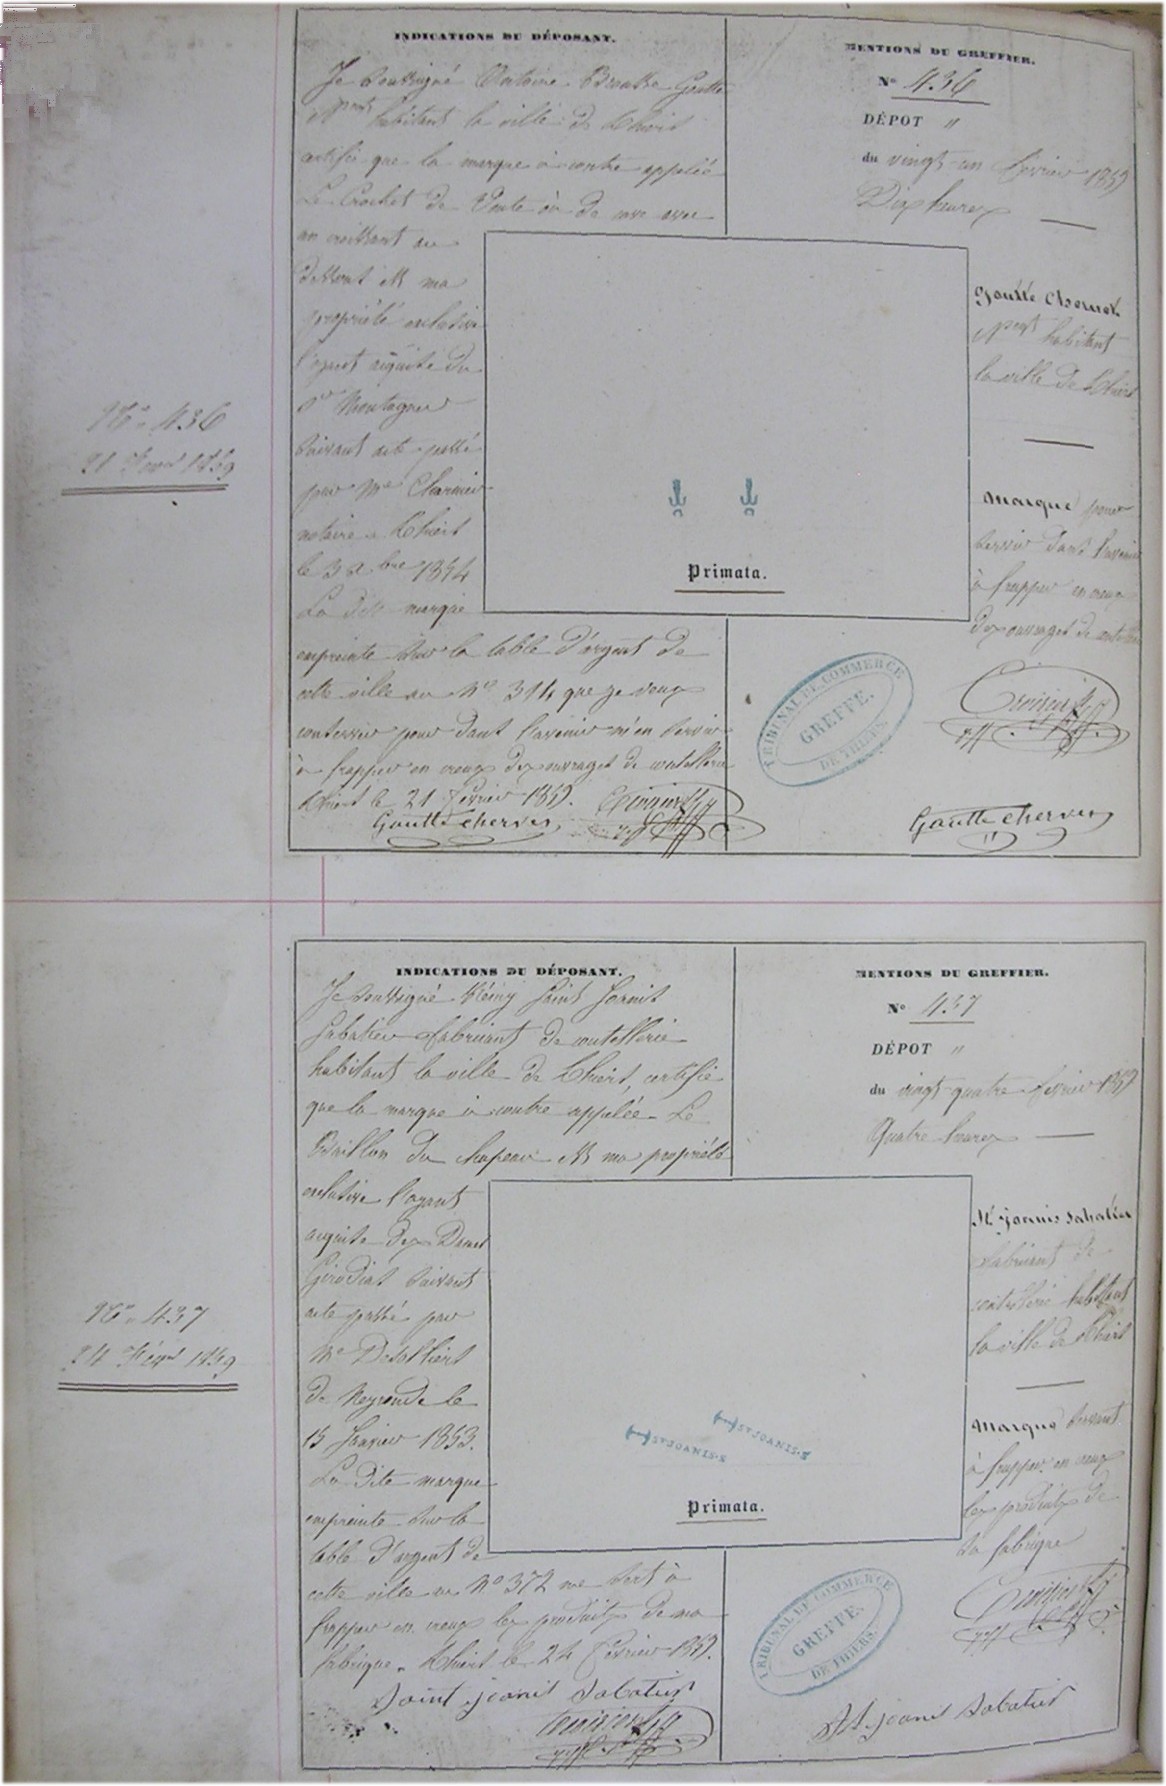 INDICATIONS DU DÉPOSANT.
Je soussigné Antoine Brousse Goutte
habitant la ville de Thiers
certifie que la marque ci contre appelée
Le Crochet de Vente où de cave avec
un croissant au
dessous est ma
propriété exclusive
l'ayant acquise du
Sr Montagner
suivant acte passé
par Me Charnier
notaire a Thiers
le 3 1854
La dite marque
empreinte sur la table d'argent de
cette ville au No 314 que je veux
conserver pour dans l'avenir m'en servir
à frapper en creux des ouvrages de coutellerie
Thiers le 21 février 1859.
Goutte cherver
MENTIONS DU GREFFIER.
No 436
DÉPOT "
du vingt un février 1859
Dix heures
Goutte Chernet
habitant
la ville de Thiers
Marque pour
servir dans l'avenir
à frapper en creux
des ouvrages de coutellerie
Goutte cherver
Primata.
TRIBUNAL DE COMMERCE
GREFFE.
DE THIERS.
No 436
21 1859
INDICATIONS DU DÉPOSANT.
Je soussigné Rémy Saint Joanis
Sabatier fabricant de coutellerie
habitant la ville de Thiers, certifie
que la marque ci contre appelée Le
du chapeau est ma propriété
exclusive l'ayant
acquise des Dames
Girodias suivant
acte passé par
Me Desolliers
de Neyronde le
15 Janvier 1853.
La dite marque
empreinte sur la
table d'argent de
cette ville au No 372 me sert à
frapper en creux les produits de ma
fabrique. Thiers le 24 février 1859.
Saint joanis Sabatier
MENTIONS DU GREFFIER.
No 437
DÉPOT "
du vingt quatre février 1859
Quatre heures
St joanis Sabatier
fabricant de
coutellerie habitant
la ville de Thiers
Marque servant
à frapper en creux
les produits de
sa fabrique
St joanis Sabatier
ST JOANIS.S
ST JOANIS.S
Primata.
TRIBUNAL DE COMMERCE
GREFFE.
DE THIERS.
No 437
24 1859